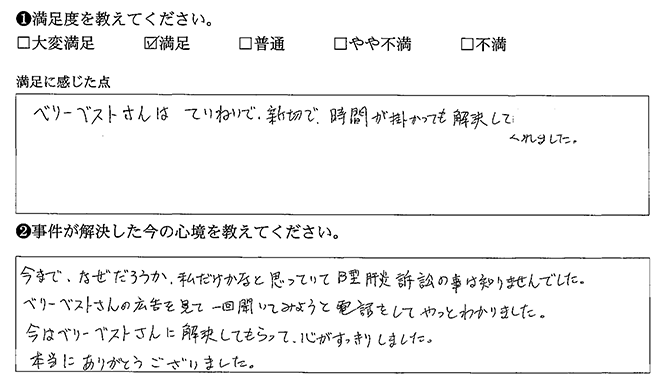 ❶満足度を教えてください。
□大変満足 ☑満足 □普通 □やや不満 □不満
満足に感じた点
ベリーベストさんは ていねいで、新切で、時間が掛かっても解決して
くれました。
❷事件が解決した今の心境を教えてください。
今まで、なぜだろうか、私だけかなと思っていてB型肝炎訴訟の事は知りませんでした。
ベリーベストさんの広告を見て一回聞いてみようと電話をしてやっとわかりました。
今はベリーベストさんに解決してもらって、心がすっきりしました。
本当にありがとうございました。